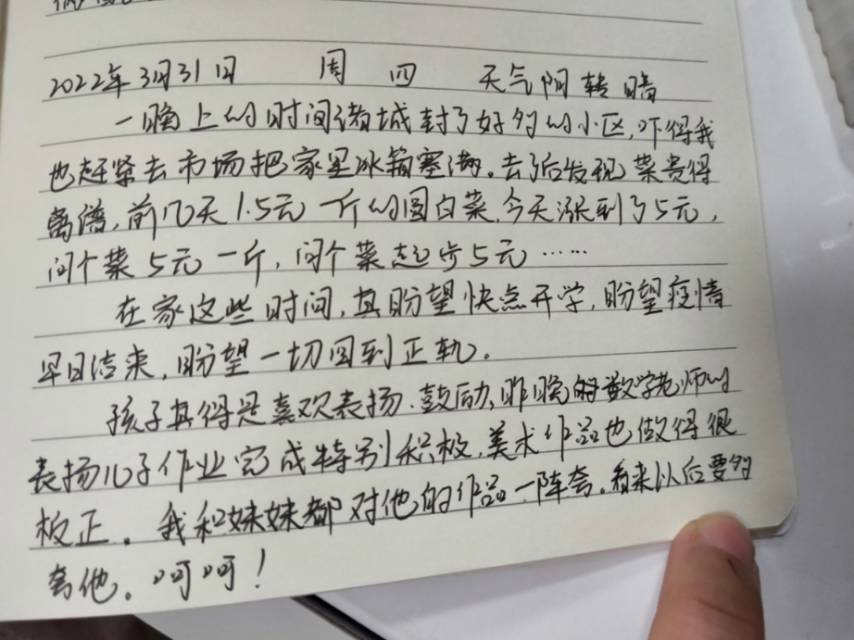 2022年3月31日 周四 天气阴转晴
一晚上的时间诸城封了好多的小区,吓得我
也赶紧去市场把家里冰箱塞满。去了后发现菜贵得
离谱,前几天1.5元一斤的圆白菜,今天涨到了5元,
问个菜5元一斤,问个菜起步5元……
在家这些时间,真盼望快点开学,盼望疫情
早日结束,盼望一切回到正轨。
孩子真得是喜欢表扬、鼓励,昨晚数学老师的
表扬儿子作业完成特别积极,美术作品也做得很
板正。我和妹妹都对他的作品一阵夸。看来以后要多
夸他。呵呵!